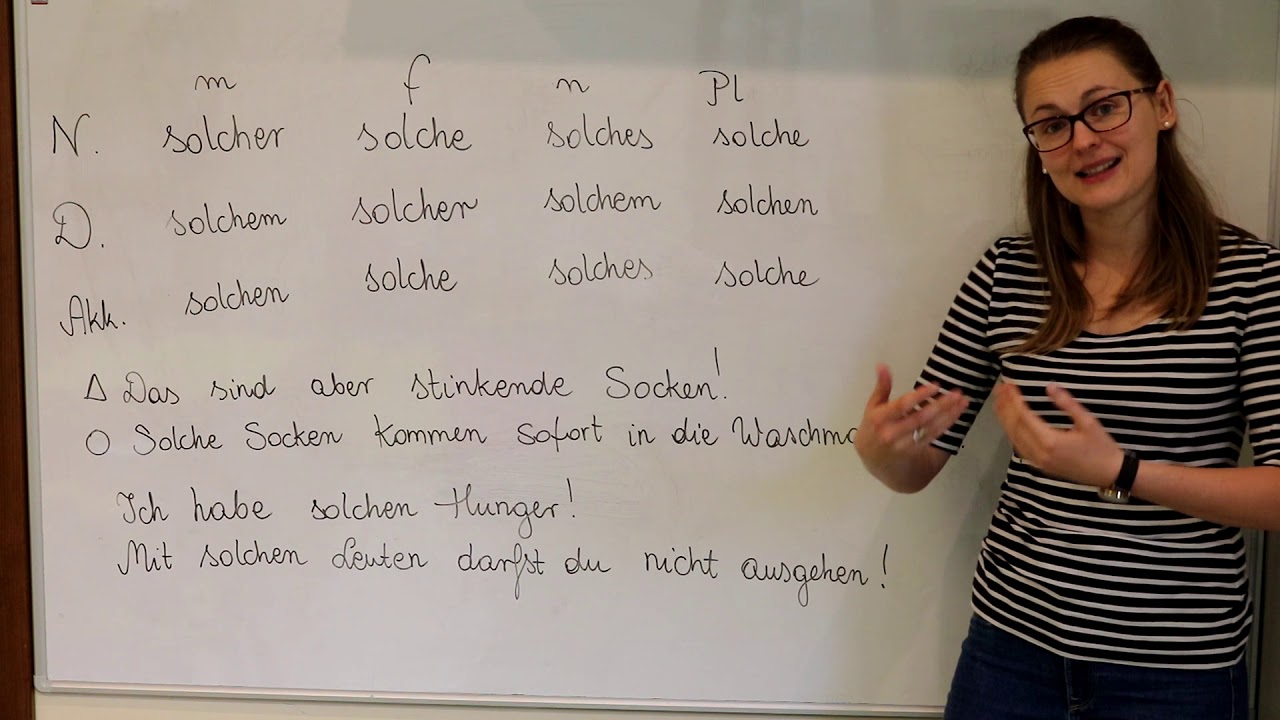 m f n Pl
N. solcher solche solches solche
D. solchem solcher solchem solchen
Akk. solchen solche solches solche
Δ Das sind aber stinkende Socken!
O Solche Socken kommen sofort in die
Ich habe solchen Hunger!
Mit solchen Leuten darfst du nicht ausgehen!